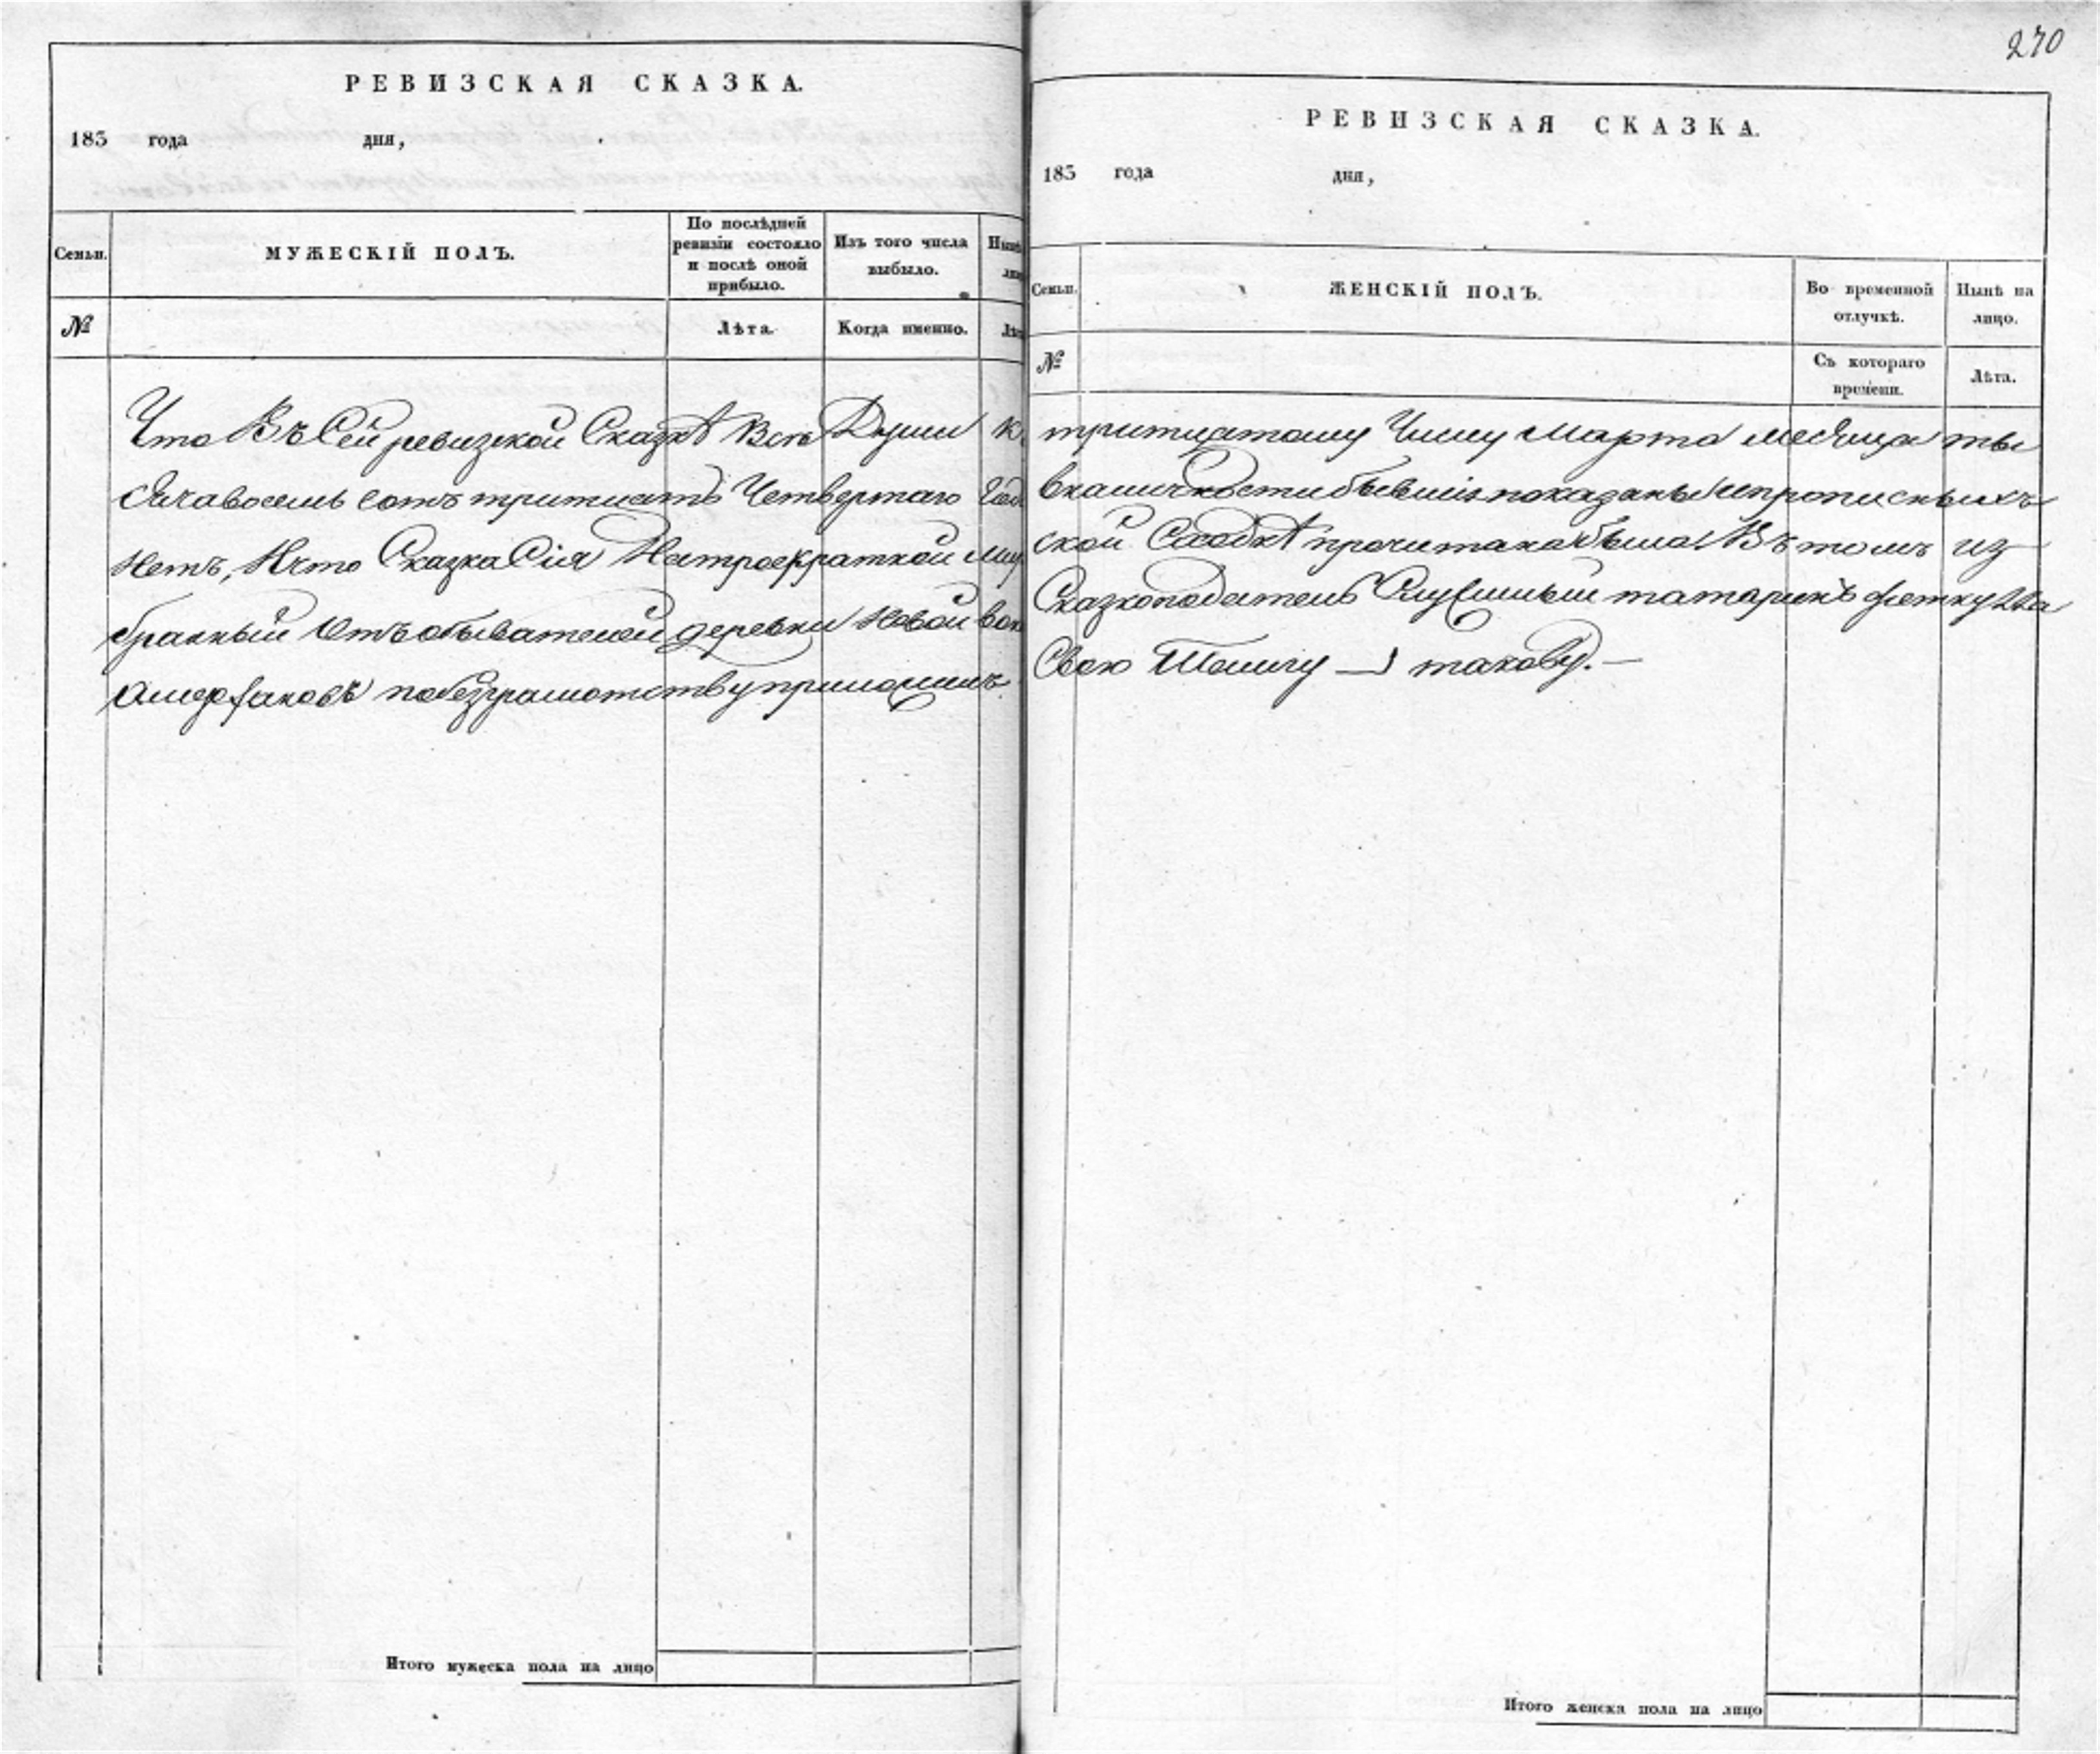 270
РЕВИЗСКАЯ СКАЗКА.
183 года дня,
Семьи.
МУЖЕСКІЙ ПОЛЪ.
По послѣдней ревизіи состояло и послѣ оной прибыло.
Изъ того числа выбыло.
№
Лѣта.
Когда именно.
РЕВИЗСКАЯ СКАЗКА.
183 года дня,
Семьи.
ЖЕНСКІЙ ПОЛЪ.
Во временной отлучкѣ.
Нынѣ на лицо.
№
Съ котораго времени.
Лѣта.
Что Въ Сей ревизской Сказкѣ Всѣ Души К тритцатому Числу Марта месяца ты
сячавосемь сотъ тритцать Четвертаго Года вналичности бывшія показаны инепрописныхъ
нетъ, Ичто Сказка Сія Натроекратной мир ской Сходкѣ прочитана была. Въ томъ из
бранный Отъ обывателей деревни Новой Сказкоподатель Служилый татаринъ
по безграмотству приложилъ Свою Тамгу такову. —
Итого мужеска пола на лицо
Итого женска пола на лицо